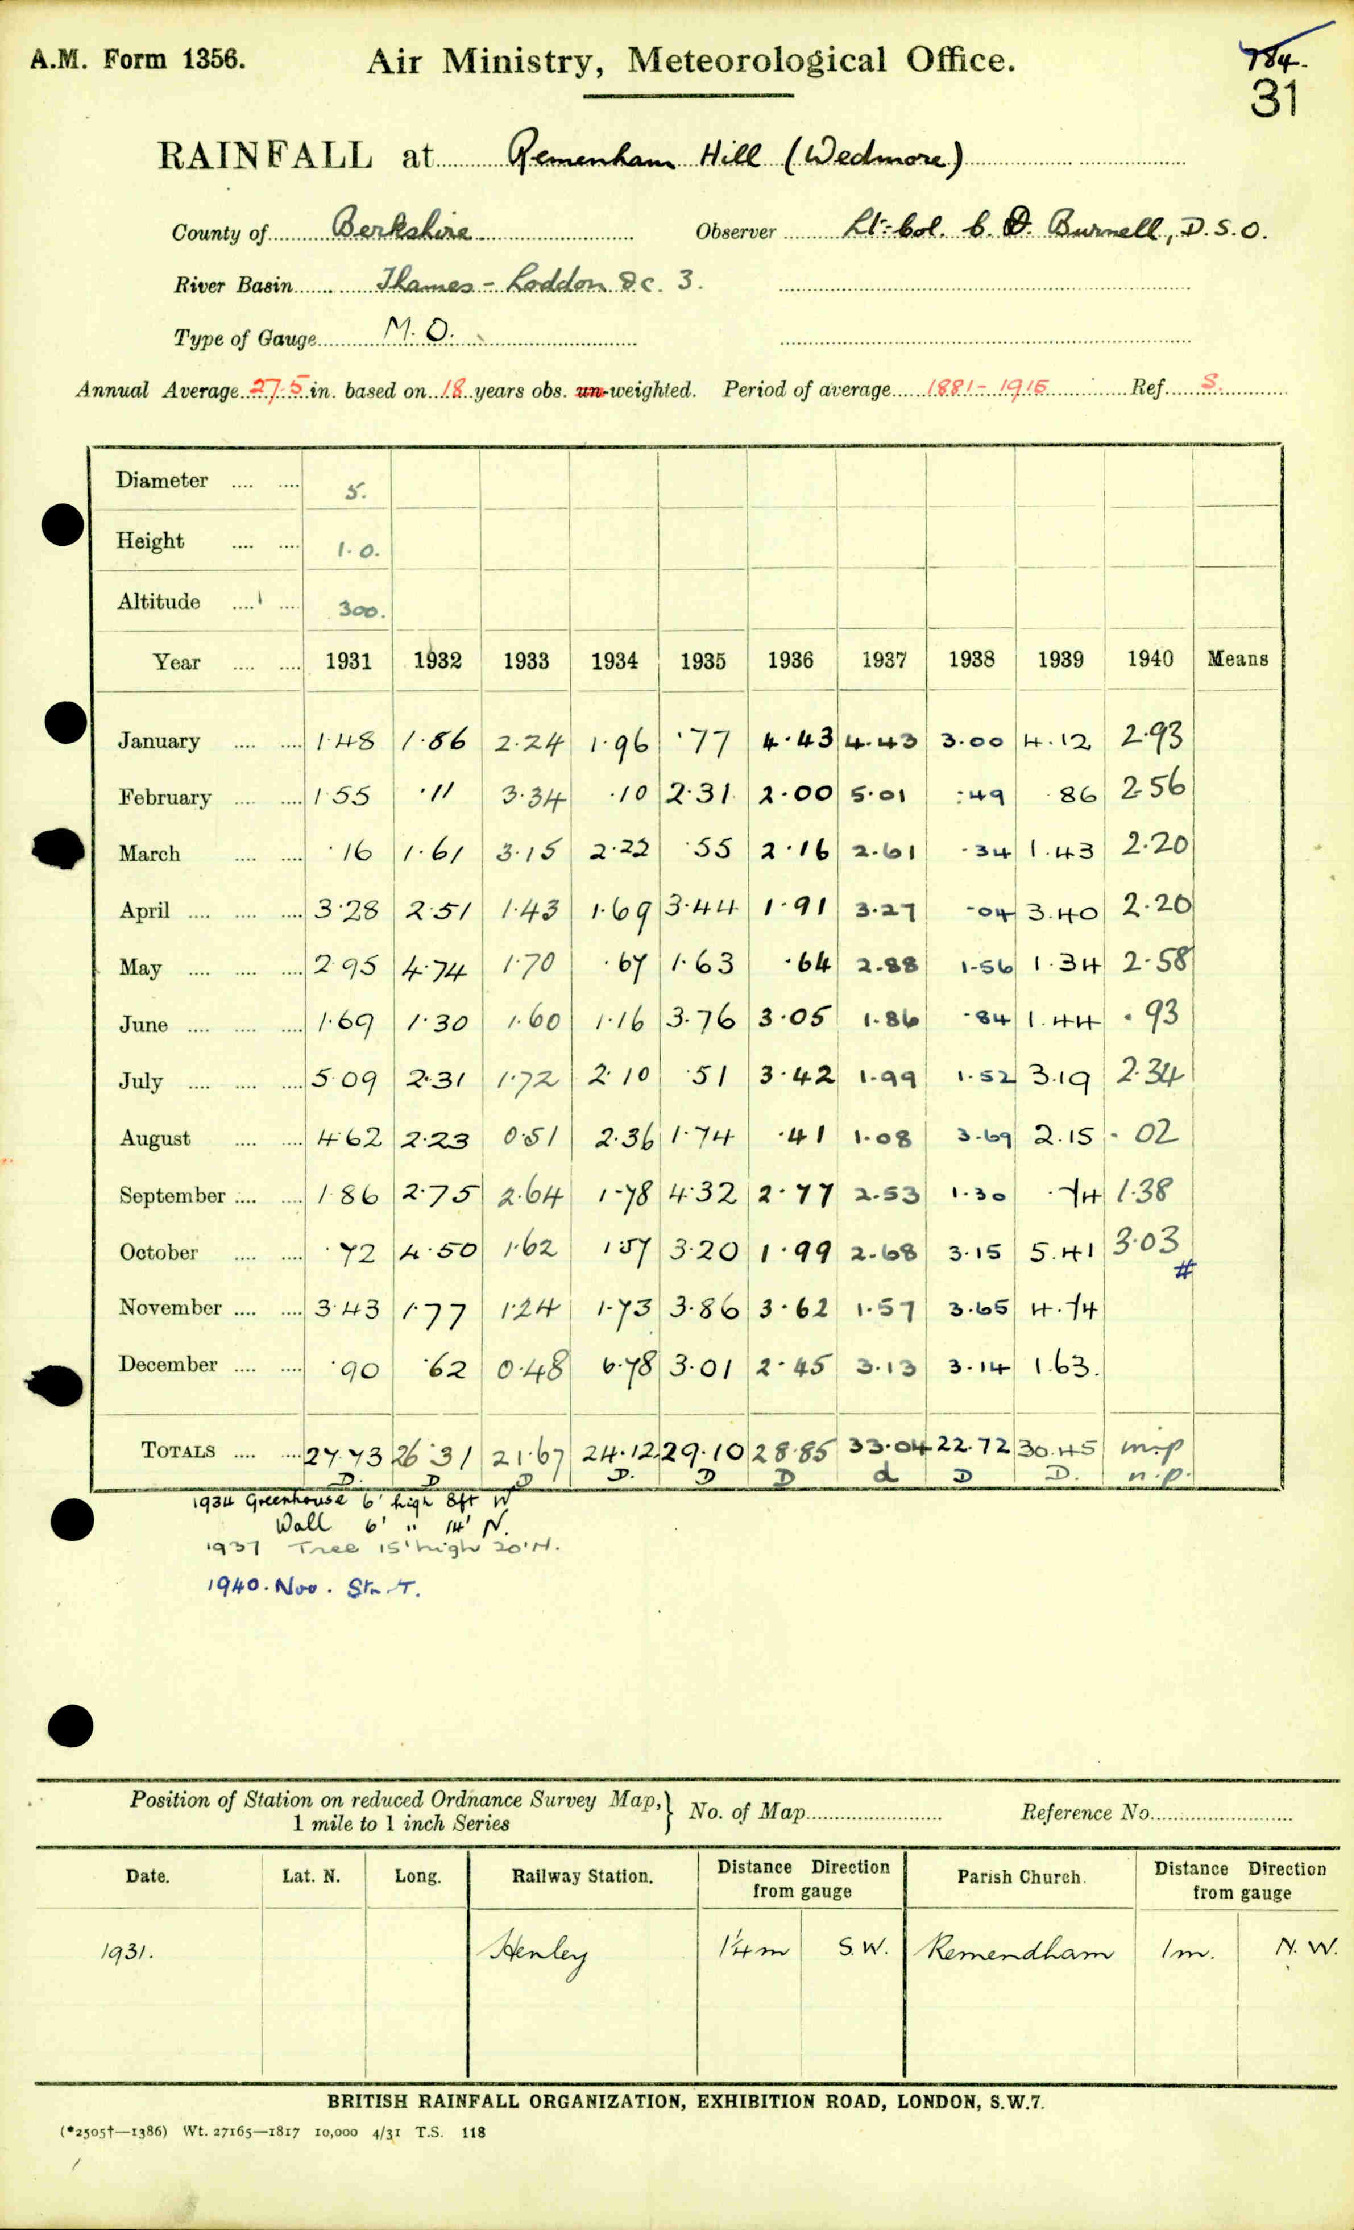 A.M. Form 1356.
Air Ministry, Meteorological Office.
784.
31
RAINFALL at Remenham Hill (Wedmore)
County of Berkshire Observer Lt: Col. C. D. Burnell, D.S.O.
River Basin Thames - Loddon &c. 3.
Type of Gauge M.O.
Annual Average 27.5 in. based on 18 years obs. un-weighted. Period of average 1881-1915 Ref. S.
Diameter 5.
Height 1.0.
Altitude 300.
Year 1931 1932 1933 1934 1935 1936 1937 1938 1939 1940 Means
January 1.48 1.86 2.24 1.96 .77 4.43 4.43 3.00 4.12 2.93
February 1.55 .11 3.34 .10 2.31 2.00 5.01 .49 .86 2.56
March .16 1.61 3.15 2.22 .55 2.16 2.61 .34 1.43 2.20
April 3.28 2.51 1.43 1.69 3.44 1.91 3.27 .04 3.40 2.20
May 2.95 4.74 1.70 .67 1.63 .64 2.88 1.56 1.34 2.58
June 1.69 1.30 1.60 1.16 3.76 3.05 1.86 .84 1.44 .93
July 5.09 2.31 1.72 2.10 .51 3.42 1.99 1.52 3.19 2.34
August 4.62 2.23 0.51 2.36 1.74 .41 1.08 3.69 2.15 .02
September 1.86 2.75 2.64 1.78 4.32 2.77 2.53 1.30 .74 1.38
October .72 4.50 1.62 1.57 3.20 1.99 2.68 3.15 5.41 3.03
#
November 3.43 1.77 1.24 1.73 3.86 3.62 1.57 3.65 4.74
December .90 .62 0.48 6.78 3.01 2.45 3.13 3.14 1.63.
TOTALS 27.73 26.31 21.67 24.12 29.10 28.85 33.04 22.72 30.45 inp
D. D D D. D D d D D. n.p.
1934 Greenhouse 6' high 8ft W
Wall 6' " 14' N.
1937 Tree 15' high 20' N.
1940. Nov. Stn. T.
Position of Station on reduced Ordnance Survey Map,} No. of Map Reference No.
1 mile to 1 inch Series
Date. Lat. N. Long. Railway Station. Distance Direction from gauge Parish Church. Distance Direction from gauge
1931. Henley 1¼m S.W. Remendham 1m. N.W.
BRITISH RAINFALL ORGANIZATION, EXHIBITION ROAD, LONDON, S.W.7.
(*2505†—1386) Wt. 27165—1817 10,000 4/31 T.S. 118